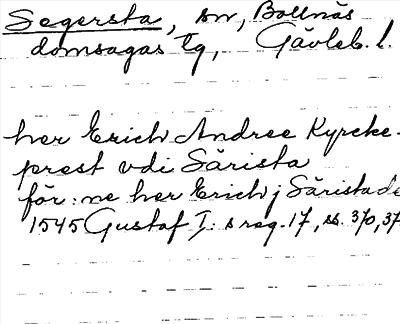 Segersta, sn, Bollnäs
domsagas tg, Gävleb. l.
her Erich Andree Kyrcke-
prest vdi Särista
för: ne her Erich j Säristade
1545 Gustaf I: s reg. 17, ss. 370, 37